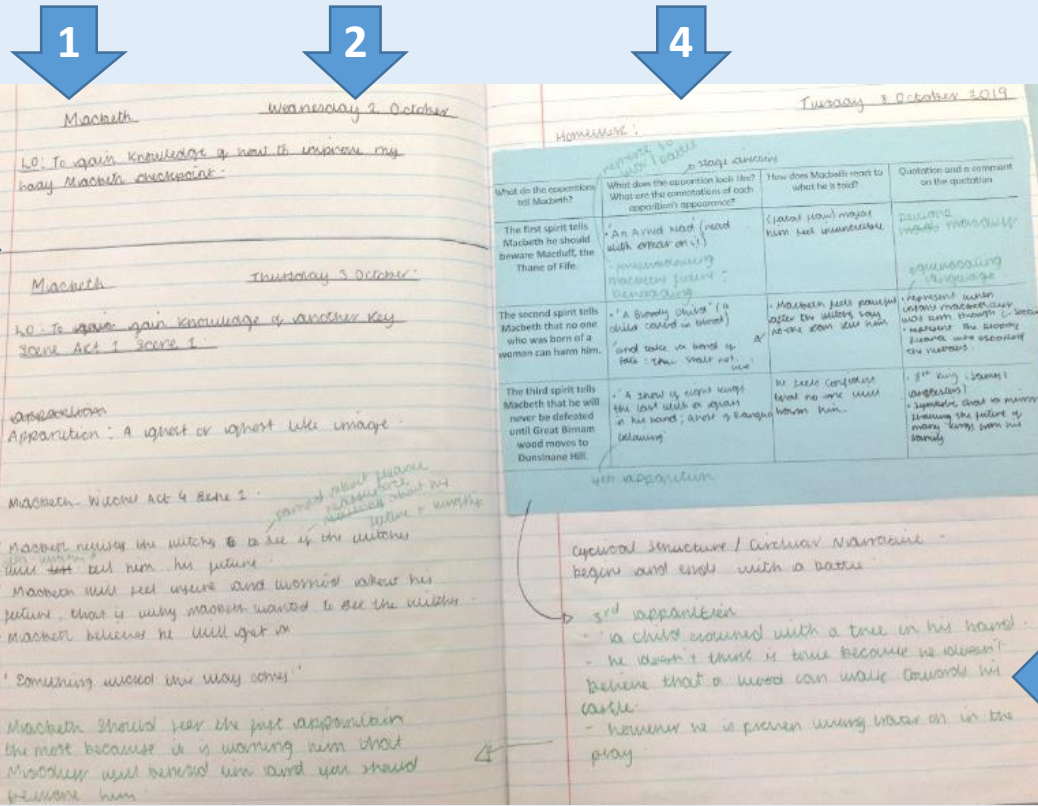 1
2
4
Macbeth
Wednesday 2 October
LO: To gain knowledge of how to improve my
Lady Macbeth checkpoint.
Macbeth
Thursday 3 October.
LO: To gain knowledge of another key
scene Act 1 Scene 1.
Apparition: A ghost or ghost like image.
Macbeth - Witches Act 4 Scene 1.
paranoid about fleance
reassurance
about his
future + kingship
Macbeth the witches to see if the witches
will tell him his future.
Macbeth will feel unsure and worried about his
future, that is why macbeth wanted to see the witches.
Macbeth believes he will get
"Something wicked this way comes"
Macbeth should fear the first
the most because it is warning him that
will behead him and you should
him.
Tuesday 8 October 2019
Homework:
stage direction
What do the apparitions
tell Macbeth?
What does the apparition look like?
What are the connotations of each
apparition's appearance?
How does Macbeth react to
what he is told?
Quotation and a comment
on the quotation
The first spirit tells
Macbeth he should
beware Macduff, the
Thane of Fife.
• An Armed Head (head
with armor on it)
macbeths future -
beheading
(fatal flaw) makes
him feel invincible
beware
macduff
language.
The second spirit tells
Macbeth that no one
who was born of a
woman can harm him.
• 'A Bloody Child' (a
child covered in blood)
'and take a bond of
fate: thou shalt not
live'
• Macbeth feels powerful
after the witches say
no-one can him
• represent when
was torn through
• represent the bloody
fleance who escaped
the murders.
The third spirit tells
Macbeth that he will
never be defeated
until Great Birnam
wood moves to
Dunsinane Hill.
• 'A show of eight kings
the last with a glass
in his hand; Ghost of Banquo
following'
he feels confident
that no one will
harm him.
• 8th king (James 1
• Symbolic that a mirror
showing the future of
many kings from his
family
4th apparition
cyclical structure / circular Narrative -
begins and ends with a battle.
3rd apparition
- 'a child crowned with a tree in his hand.
- he doesn't think is true because he doesn't
believe that a wood can walk towards his
castle.
- however he is proven wrong later on in the
play.